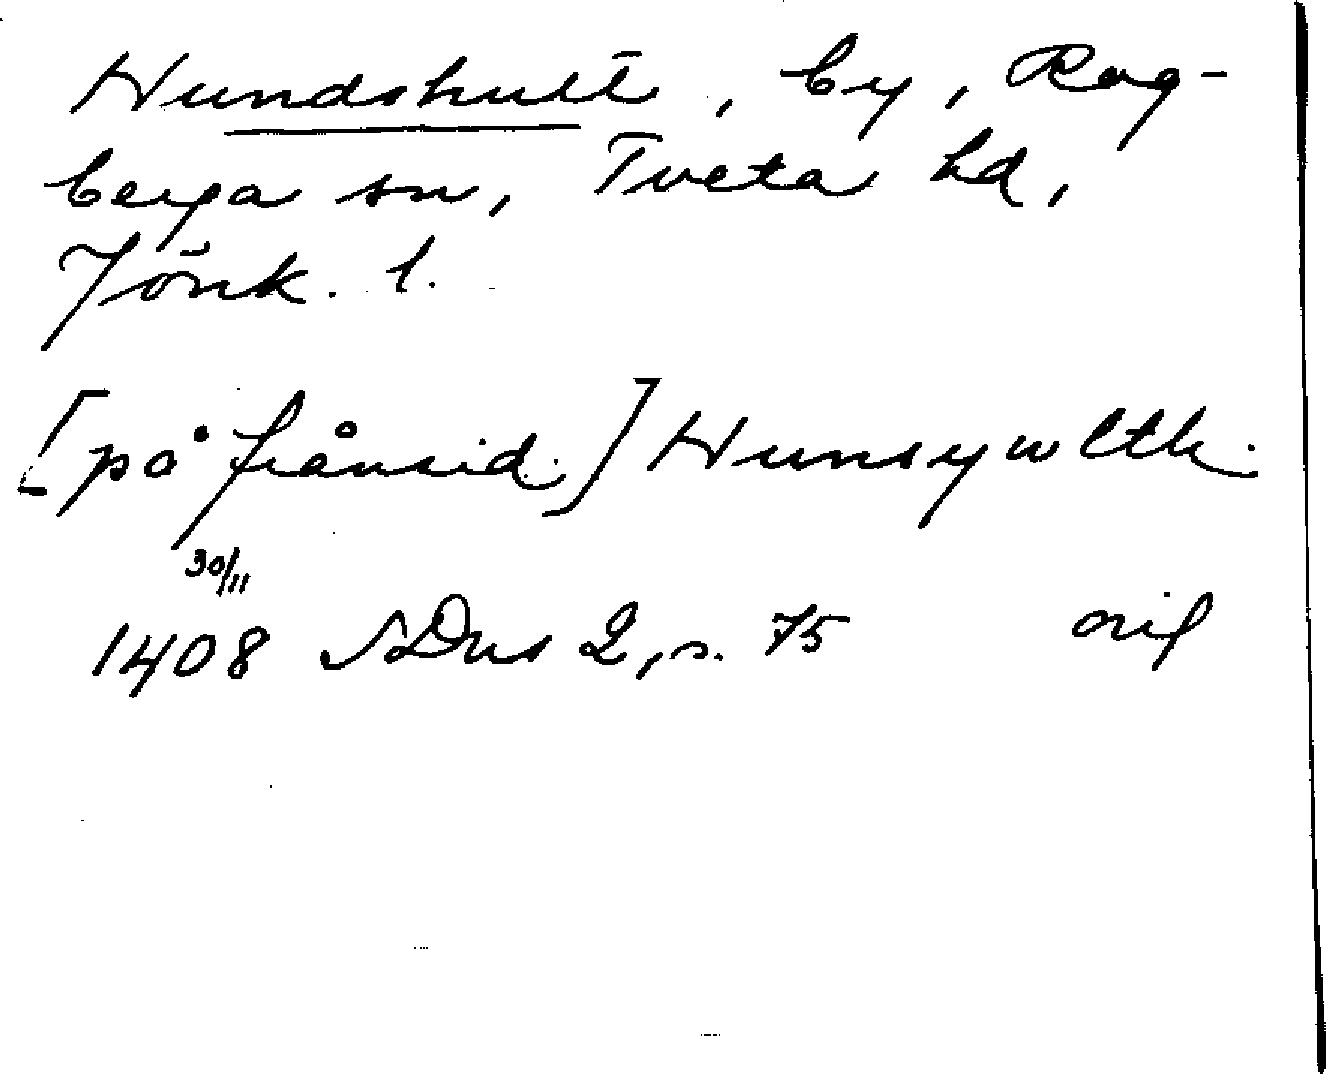 Hundshult, by, Rog-
berga sn, Tveta hd,
Jönk. l.
[på frånsid.] Hunsywlth.
30/11
1408 SDns 2, s. 75 orig